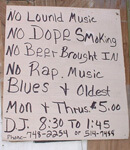 No Lounld Music
No Dope Smoking
No Beer Brought In
No Rap. Music
Blues & Oldest
Mon & Thrus. $5.00
D.J. 8:30 To 1:45
Phone- 748-2254 or 514-7488